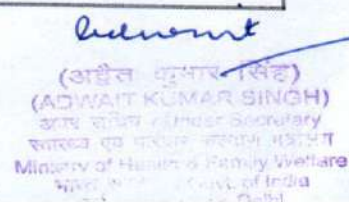 (अद्वैत कुमार सिंह)
(ADWAIT KUMAR SINGH)
अवर सचिव / Under Secretary
स्वास्थ्य एवं परिवार कल्याण मंत्रालय
Ministry of Health & Family Welfare
भारत / Govt. of India
Delhi